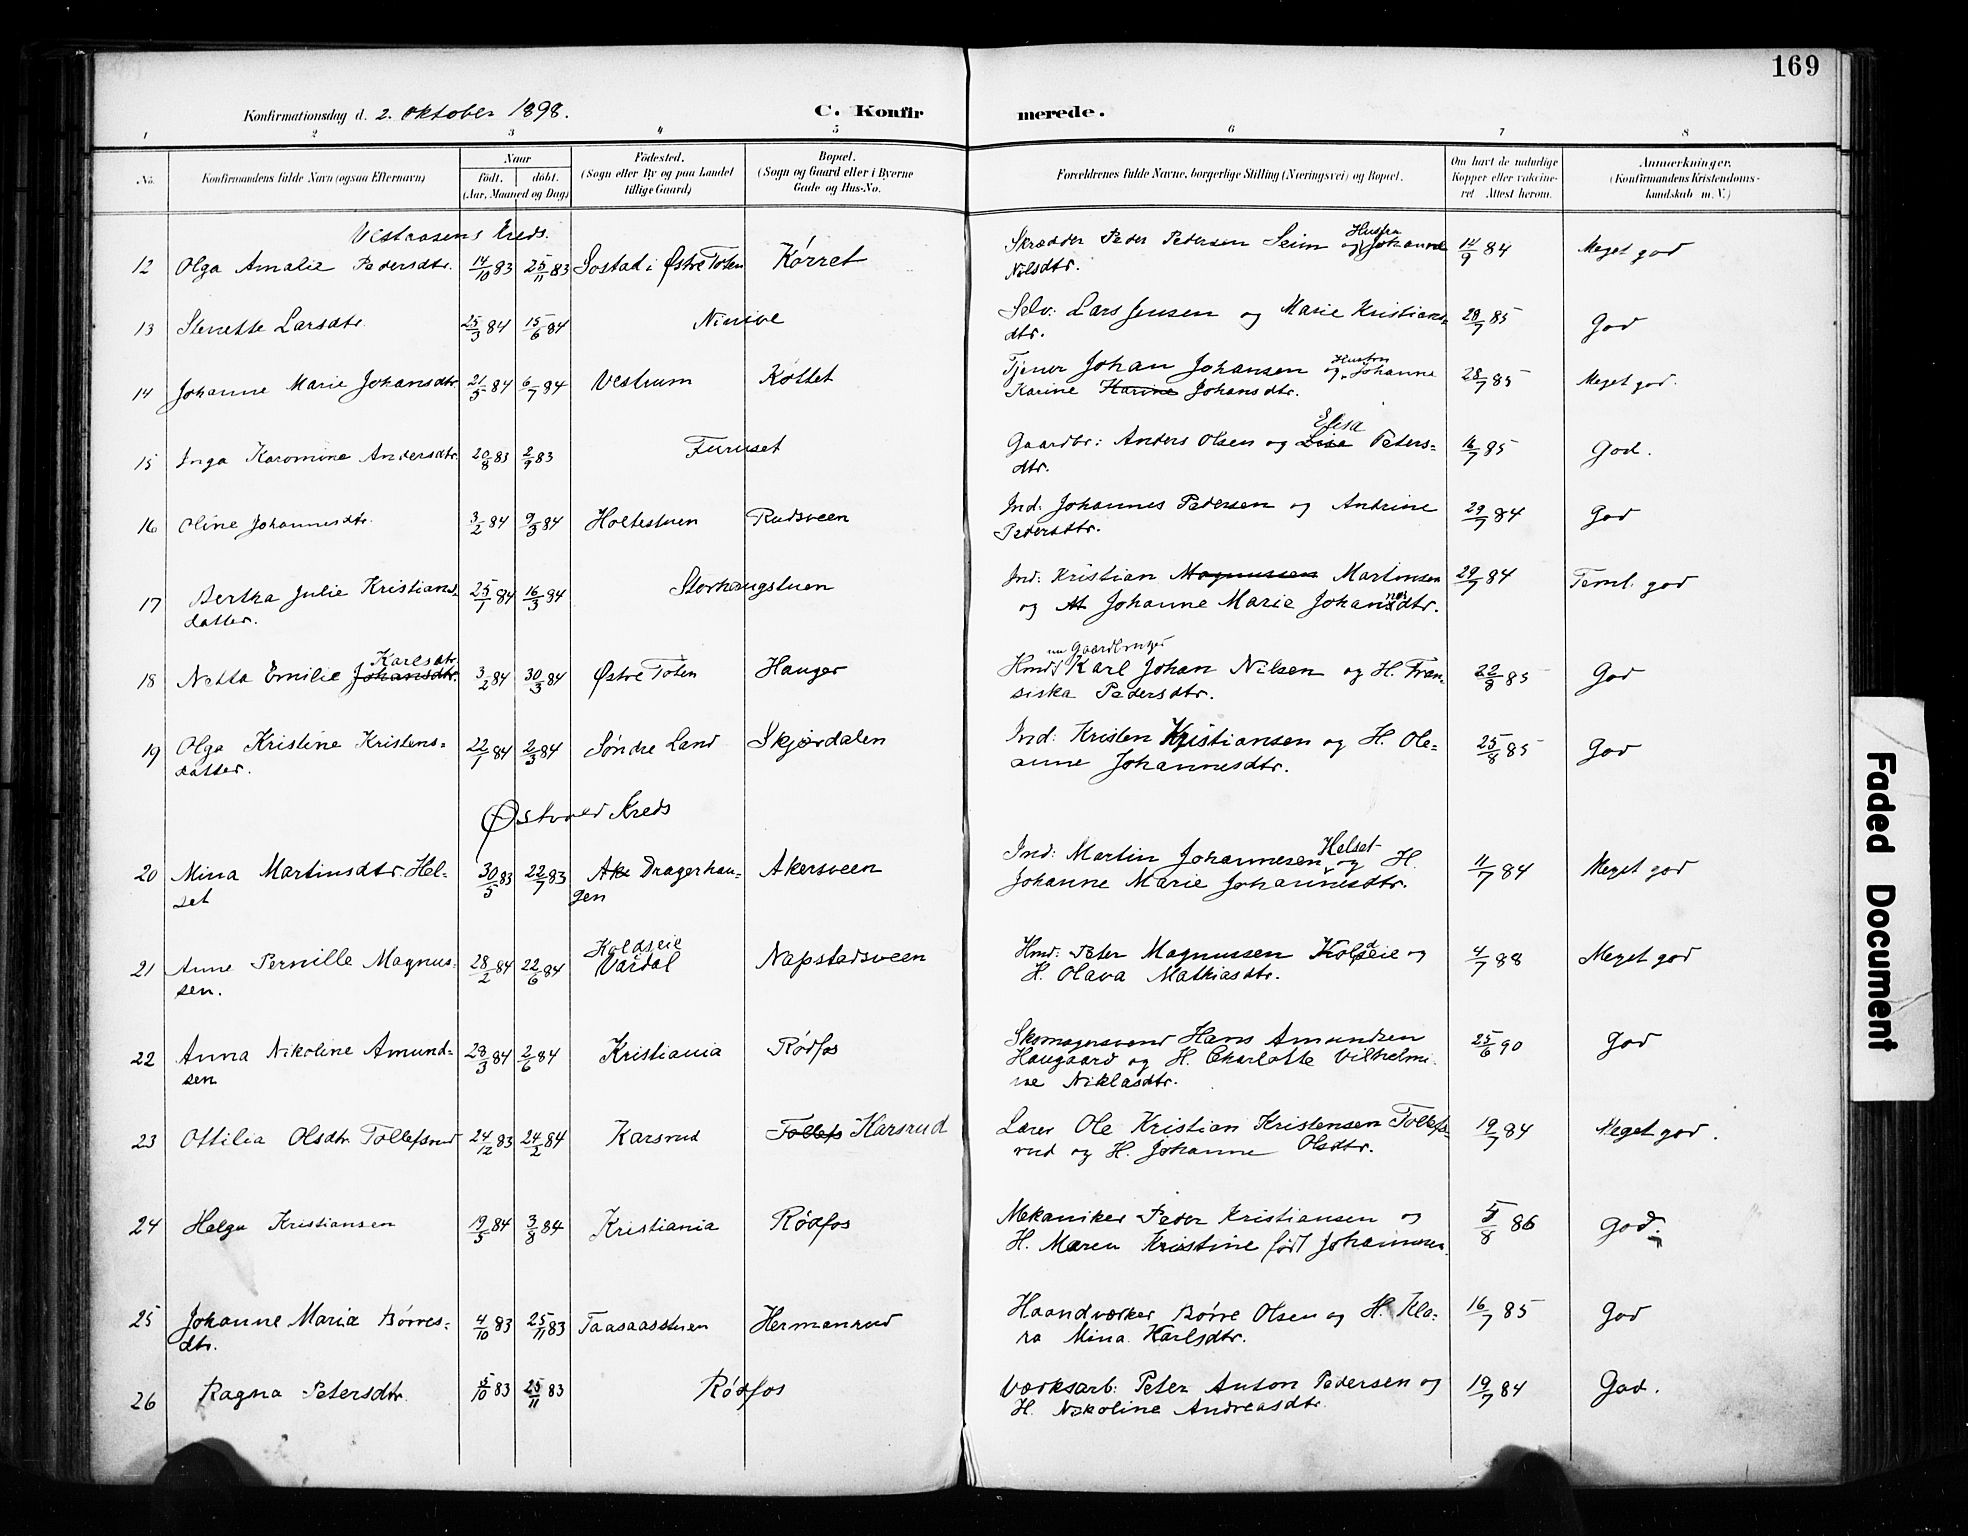 169
Konfirmationsdag d. 2. oktober 1898.
C. Konfirmerede.
1 2 3 4 5 6 7 8
No.
Konfirmandens fulde Navn (ogsaa Efternavn)
Naar
født. døbt.
(Aar, Maaned og Dag)
Fødested.
(Sogn eller By og paa Landet
tillige Gaard)
Bopæl.
(Sogn og Gaard eller i Byerne
Gade og Hus-No.
Forældrenes fulde Navne, borgerlige Stilling (Næringsvei) og Bopæl.
Om havt de naturlige
Kopper eller vakcine-
ret Attest herom.
Anmerkninger.
(Konfirmandens Kristendoms-
kundskab m. V.)
Vestaasens Kreds.
12 Olga Amalie Pedersdtr. 14/10 83 25/11 83 Sostad i Østre Toten Kørret Skrædder Peder Pedersen Seim og Hustru Johanne 12/9 84 Meget god
Nilsdtr.
13 Stenette Larsdtr. 25/3 84 15/6 84 Ninive Selv: Lars Jensen og Marie Kristians- 28/7 85 God
dtr.
14 Johanne Marie Johansdtr. 21/5 84 6/7 84 Vestrum Køltet Tjener Johan Johansen og Hustru Johanne 28/7 85 Meget god.
Karine Karine Johansdtr.
15 Inga Karomine Andersdtr. 20/8 83 2/9 83 Furuset Gaardbr: Anders Olsen og Lisa Elisa Peters- 16/7 85 God.
dtr.
16 Oline Johannesdtr. 3/2 84 9/3 84 Holtestuen Rudsveen Ind: Johannes Pedersen og Andrine 29/7 84 God
Pedersdtr.
17 Bertha Julie Kristians- 25/1 84 16/3 84 Storhaugstuen Ind: Kristian Magnussen Martinsen 29/7 84 Teml. god
datter. og At Johanne Marie Johannesdtr.
18 Netta Emilie Johansdtr. Karlsdtr. 3/2 84 30/3 84 Østre Toten Hauger Hmd: nu Gaardbruger Karl Johan Nilsen og H. Fran- 22/8 85 God
siska Pedersdtr.
19 Olga Kristine Kristens- 22/1 84 2/3 84 Søndre Land Skjerdalen Ind: Kristen Kristiansen og H. Ole- 25/8 85 God
datter. anne Johannesdtr.
Østvold Kreds
20 Mina Martinsdtr. Hel- 30/5 83 22/7 83 Ake Dragerhau- Akersveen Ind: Martin Johannesen Helset og H. 11/7 84 Meget god
set gen Johanne Marie Johannesdtr.
21 Anne Pernille Magnus- 28/2 84 22/6 84 Koldseie Vardal Napstadsveen Hmd: Peter Magnussen Koldseie og 4/7 88 Meget god
sen. H. Olava Mathiasdtr.
22 Anna Nikoline Amund- 28/3 84 2/6 84 Kristiania Rødfos Skomagersvend Hans Amundsen 25/6 90 God
sen Haugaard og H. Charlotte Vilhelmi-
ne Niklasdtr.
23 Ottilia Olsdtr. Tollefsrud 24/12 83 24/2 84 Karsrud Tollefs Karsrud Lærer Ole Kristian Kristensen Tollefs- 19/7 84 Meget god.
rud og H. Johanne Olsdtr.
24 Helga Kristiansen 19/5 84 3/8 84 Kristiania Rødfos Mekaniker Peder Kristiansen og 5/8 86 God.
H. Maren Kristine født Johannesen
25 Johanne Maria Børres- 4/10 83 25/11 83 Taasaasstuen Hermanrud Haandværker Børre Olsen og H. Kla- 16/7 85 God
dtr. ra Mina Karlsdtr.
26 Ragna Petersdtr. 5/10 83 25/11 83 Rødfos Værksarb: Peter Anton Pedersen og 19/7 84 God.
H. Nikoline Andreasdtr.
Faded Document